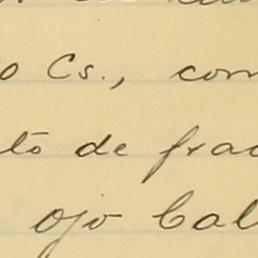 o Cs., com
to de frac
ojo Cal